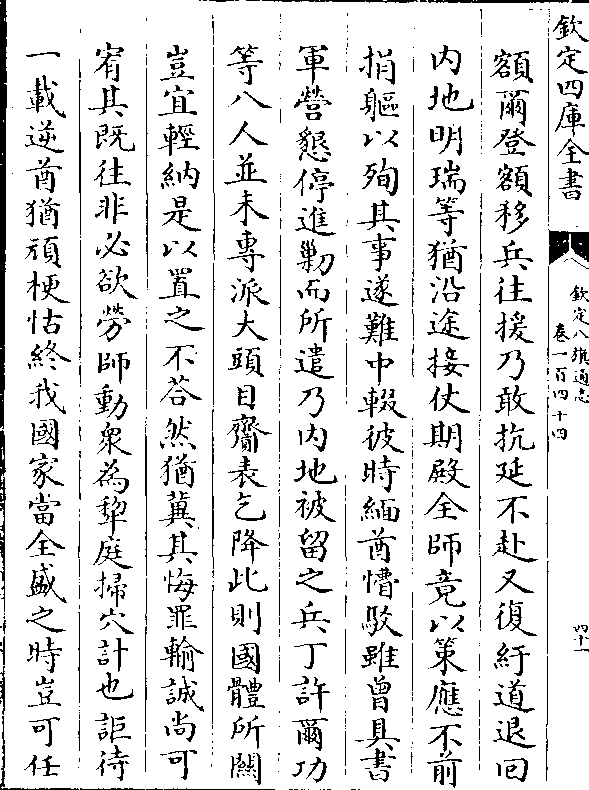 欽定四庫全書
欽定八旗通志
卷一百四十四
四十一
額爾登額移兵往援乃敢抗延不赴又復紆道退回
内地明瑞等猶沿途接仗期殿全師竟以策應不前
捐軀以殉其事遂難中輟彼時緬酋懵駭雖曾具書
軍營懇停進勦而所遣乃内地被留之兵丁許爾功
等八人並未專派大頭目齎表乞降此則國體所關
豈宜輕納是以置之不答然猶冀其悔罪輸誠尚可
宥其既往非必欲勞師動衆為犂庭掃穴計也詎待
一載逆酋猶頑梗怙終我國家當全盛之時豈可任